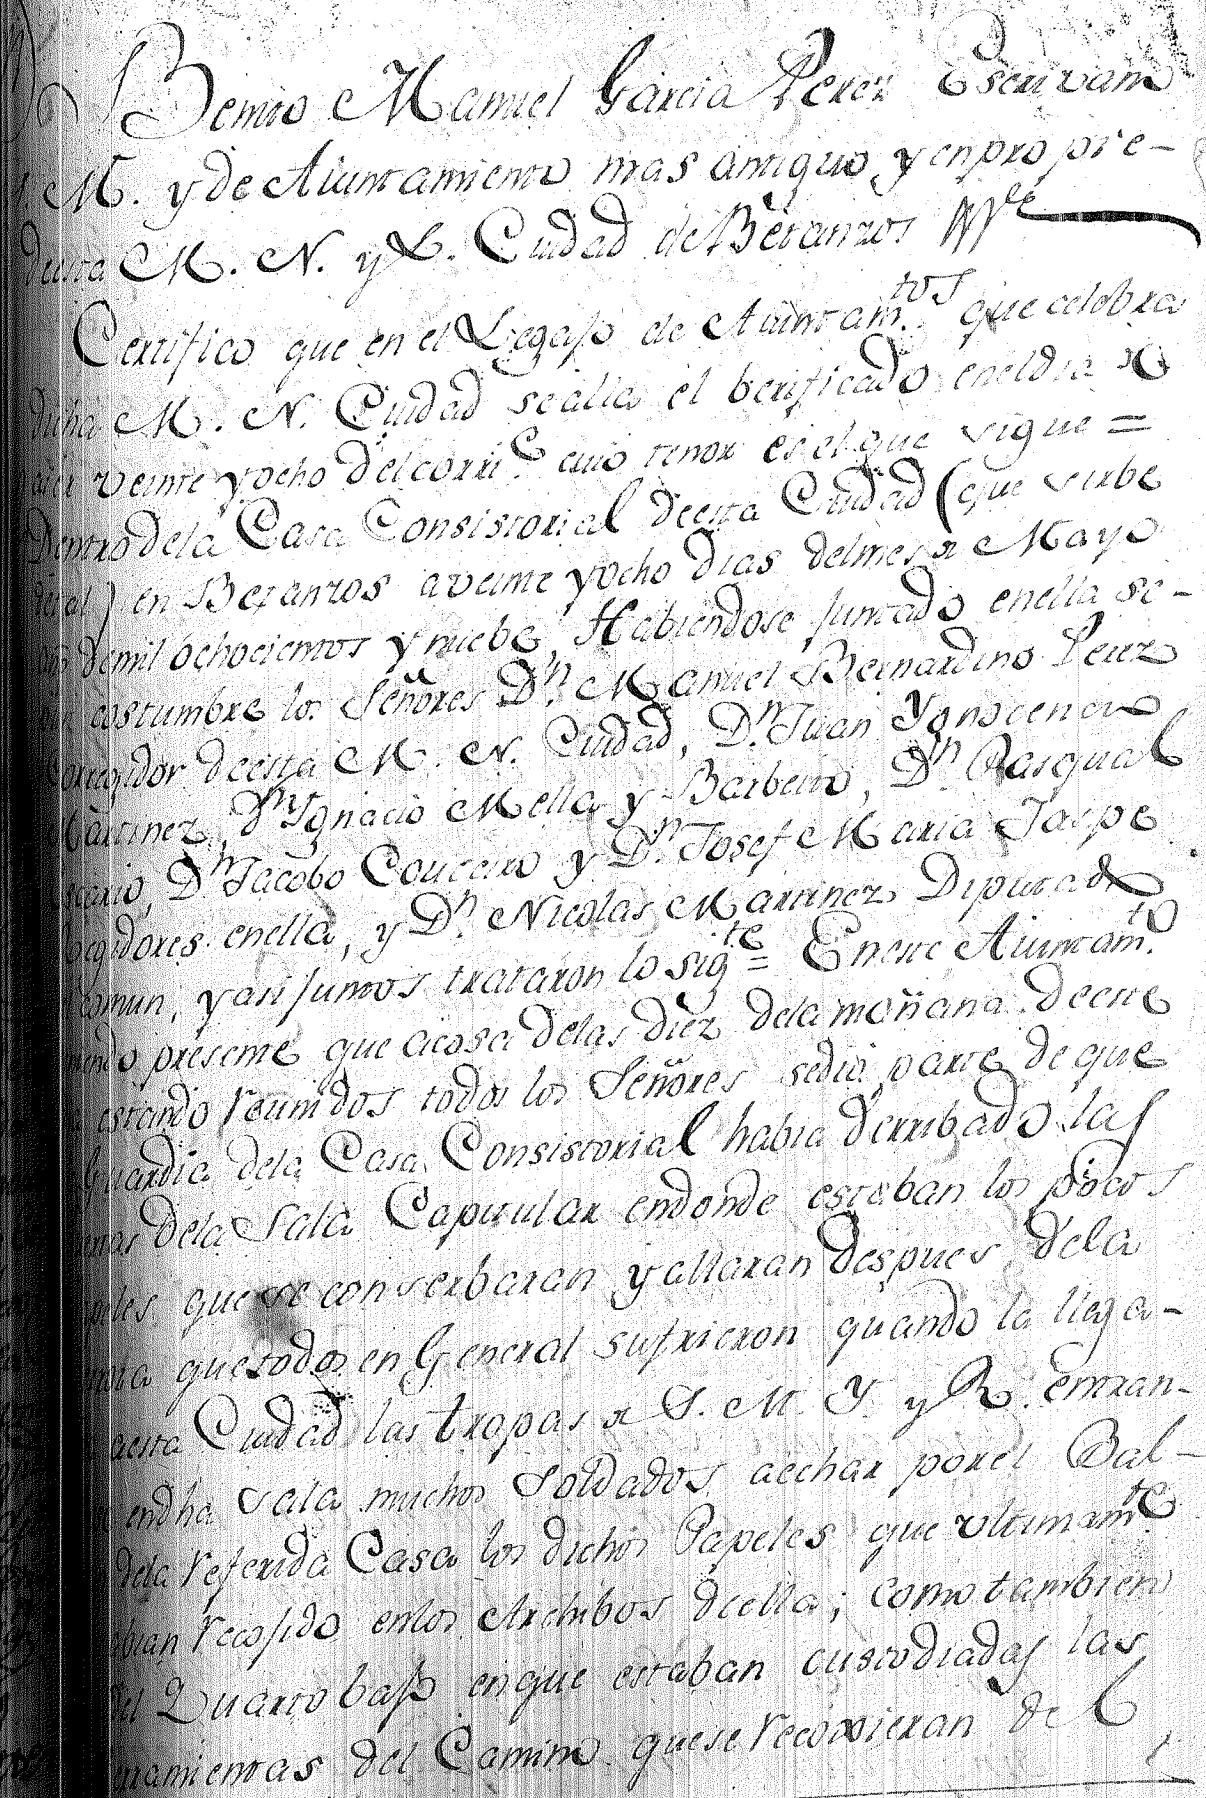 Yo Benito Manuel Garcia Perez Escrivano
S. M. y de Aiuntamiento mas antiguo, y en propie-
deesta M. N. y L. Ciudad de Betanzos &&c
Certifico que en el Legajo de Aiuntam.tos que celebra
dicha M. N. Ciudad se alla el berificado en el dia de
veinte y ocho del corri.e cuio tenor es el que sigue =
Dentro dela Casa Consistorial deesta Ciudad (que sirbe
de tal) en Betanzos a veinte y ocho dias del mes de Mayo
demil ochocientos y nuebe, Habiendose juntado enella se-
costumbre los Señores D.n Manuel Bernardino Perez
Corregidor deesta M. N. Ciudad, D.n Juan Ynocencio
Martinez, D.n Ignacio Mella y Barbeito, D.n Pasqual
D.n Jacobo Couceiro y D.n Josef Maria Jaspe
Regidores enella, y D.n Nicolas Martinez Diputado
comun, y asi juntos trataron lo sig.te = Eneste Aiuntam.to
presente que acosa delas diez dela mañana deeste
estando reunidos todos los Señores se dio parte de que
Guardia dela Casa Consistorial habia derribado las
dela Sala Capitular endonde estaban los pocos
que se conserbaran y allaran despues dela
que todos en General sufrieron quando la llega-
aesta Ciudad las tropas de S. M. Y. y R. entran-
endha sala muchos Soldados aechar por el Bal-
dela referida Casa los dichos Papeles que ultimam.te
recojido enlos Archibos deella; como tambien
del Quarto bajo en que estaban custodiadas las
del Camino que se recojieran de l